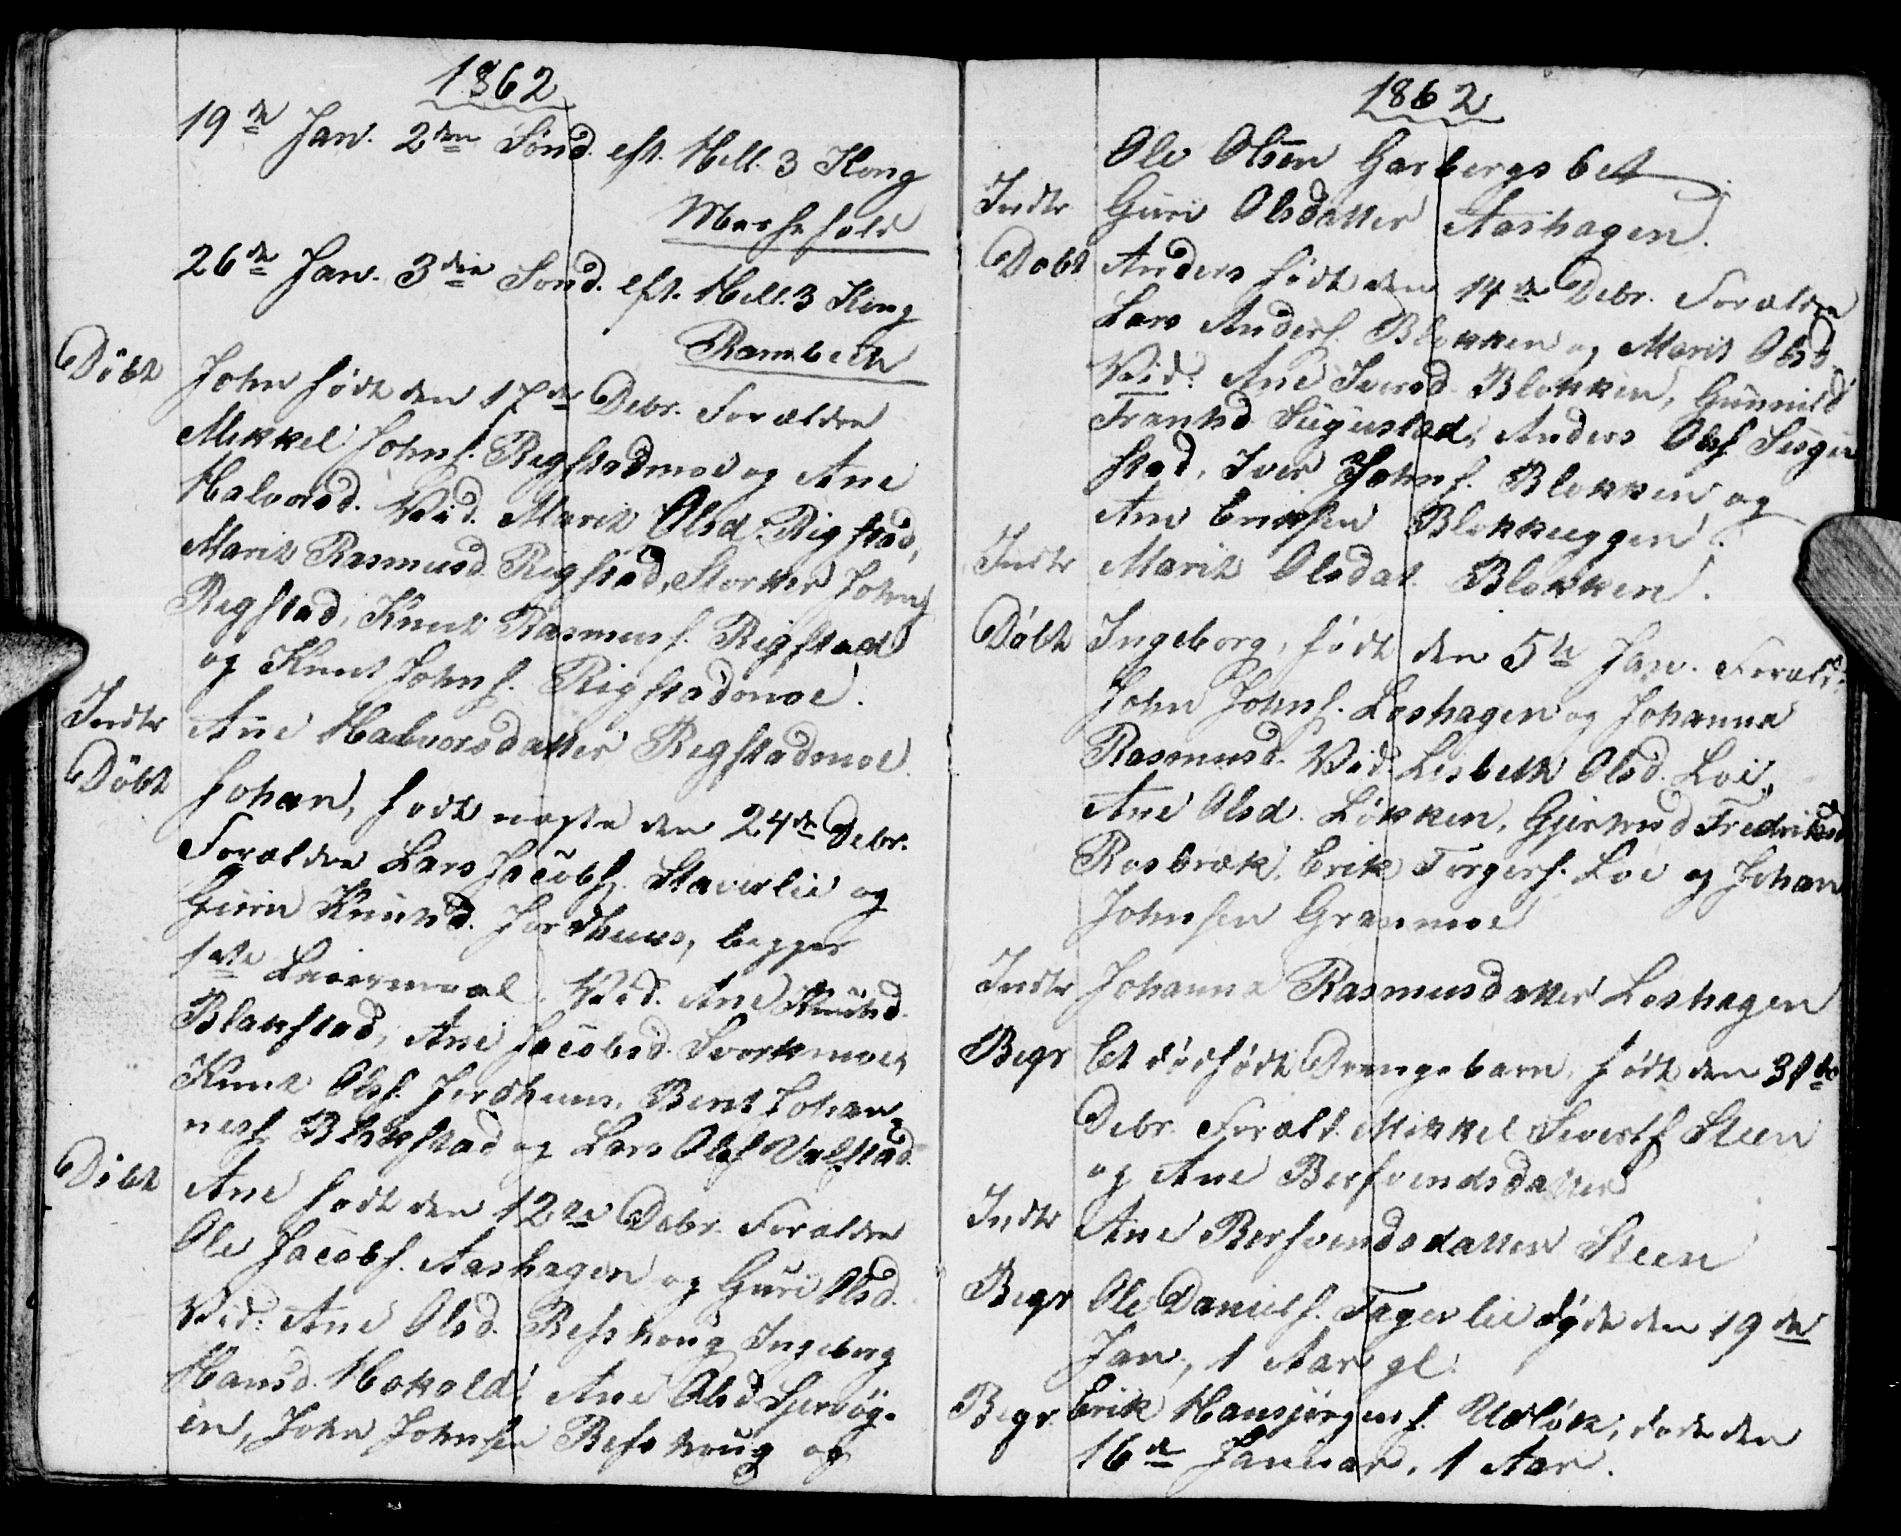 1862
19de Jan. 2den Sönd. eft. Hell. 3 Kong
26de Jan. 3die Sönd. eft. Hell. 3 Kong
Döbt John födt den 17de Debr. Forældre
Mikkel Johns. Rigstadmoe og Ane
Halvorsd. Vid. Marit Olsd. Rigstad,
Marit Rasmusd. Rigstad, Storker Johns
Rigstad, Knut Rasmuss. Rigstad
og Knut Johns. Rigstadmoe.
Indtr Ane Halvorsdatter Rigstadmoe.
Döbt Johan, födt den 24de Debr.
Forældre Lars Jacobs. Staverlie og
Guru Knutsd. Jordhuus, begges
1ste Leiermaal. Vid. Ane Knutsd.
Blakstad, Ane Jacobsd. Svorkmoe,
Knut Ols. Jordhuus, Berit Johan-
nes Blakstad og Lars Ols
Döbt Ane födt den 12te Debr. Forældre
Ole Jacobs. Aashagen og Guri Olsd.
Vid: Ane Olsd. Ingeborg
Hansd. Ane Olsd
en, John Johnsen og
1862
Ole Olsen Garbergsbet
Indtr Guri Olsdatter Aashagen.
Döbt Anders födt den 14de Debr. Forældre
Lars Anders. Blokken og Marit Olsd.
Vid: Ane Iversd. Blokken, Gunnild
Frantsd Anders Ols.
stad, Iver Johns. Blokken og
Ane Eriksen Blokkeggen.
Indtr Marit Olsdat. Blokken.
Döbt Ingeborg, födt den 5te Jan. Foræld:
John Johns. Loshagen og Johanna
Rasmusd. Vid. Lisbeth Olsd. Loe,
Ane Olsd. Lökken, Gjertrud Fredriksd
Rosbræk, Erik Torgers. Loe og Johan
Johnsen Granmoe
Indtr Johanna Rasmusdatter Loshagen
Begr Et dödfödt Drengebarn, födt den 31te
Debr. Foræld. Mikkel Siverts Steen
og Ane Bersvendsdatter
Indtr Ane Bersvendsdatter Steen
Begr Ole Daniels. Fagerlie döde den 19de
Jan, 1 Aar gl.
Begr. Erik Hansjörgens. Utlök, döde den
16de Januar, 1 Aar.